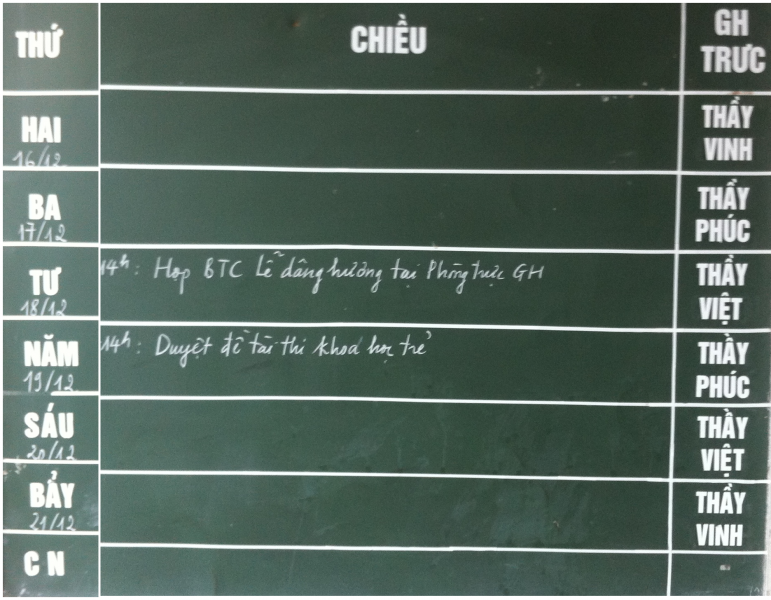 THỨ CHIỀU GH TRƯC
HAI 16/12 THẦY VINH
BA 17/12 THẦY PHÚC
TƯ 18/12 14h: Họp BTC Lễ dâng hương tại Phòng trực GH THẦY VIỆT
NĂM 19/12 14h: Duyệt đề tài thi khoa học trẻ THẦY PHÚC
SÁU 20/12 THẦY VIỆT
BẢY 21/12 THẦY VINH
C N